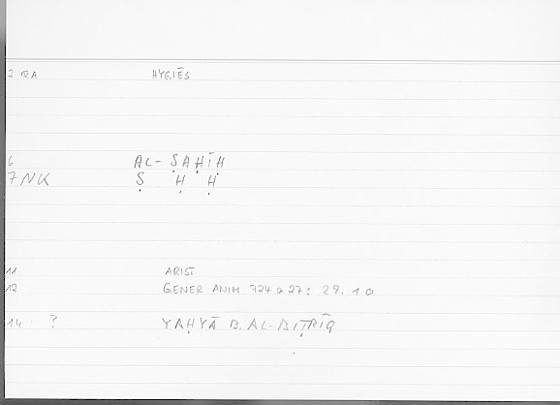 2 RA HYGIĒS
6 AL-ṢAḤĪḤ
7 NK Ṣ Ḥ Ḥ
11 ARIST
12 GENER ANIM 724 a 27: 29.10
14 ? YAḤYĀ B. AL-BIṬRĪQ